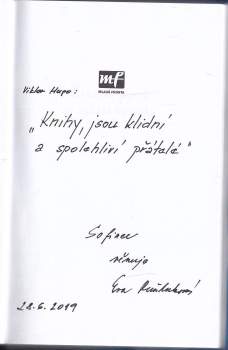 mf
MLADÁ FRONTA
Viktor Hugo:
„Knihy, jsou klidní
a spolehliví přátelé"
Sofince
věnuje
Eva
28.6.2019